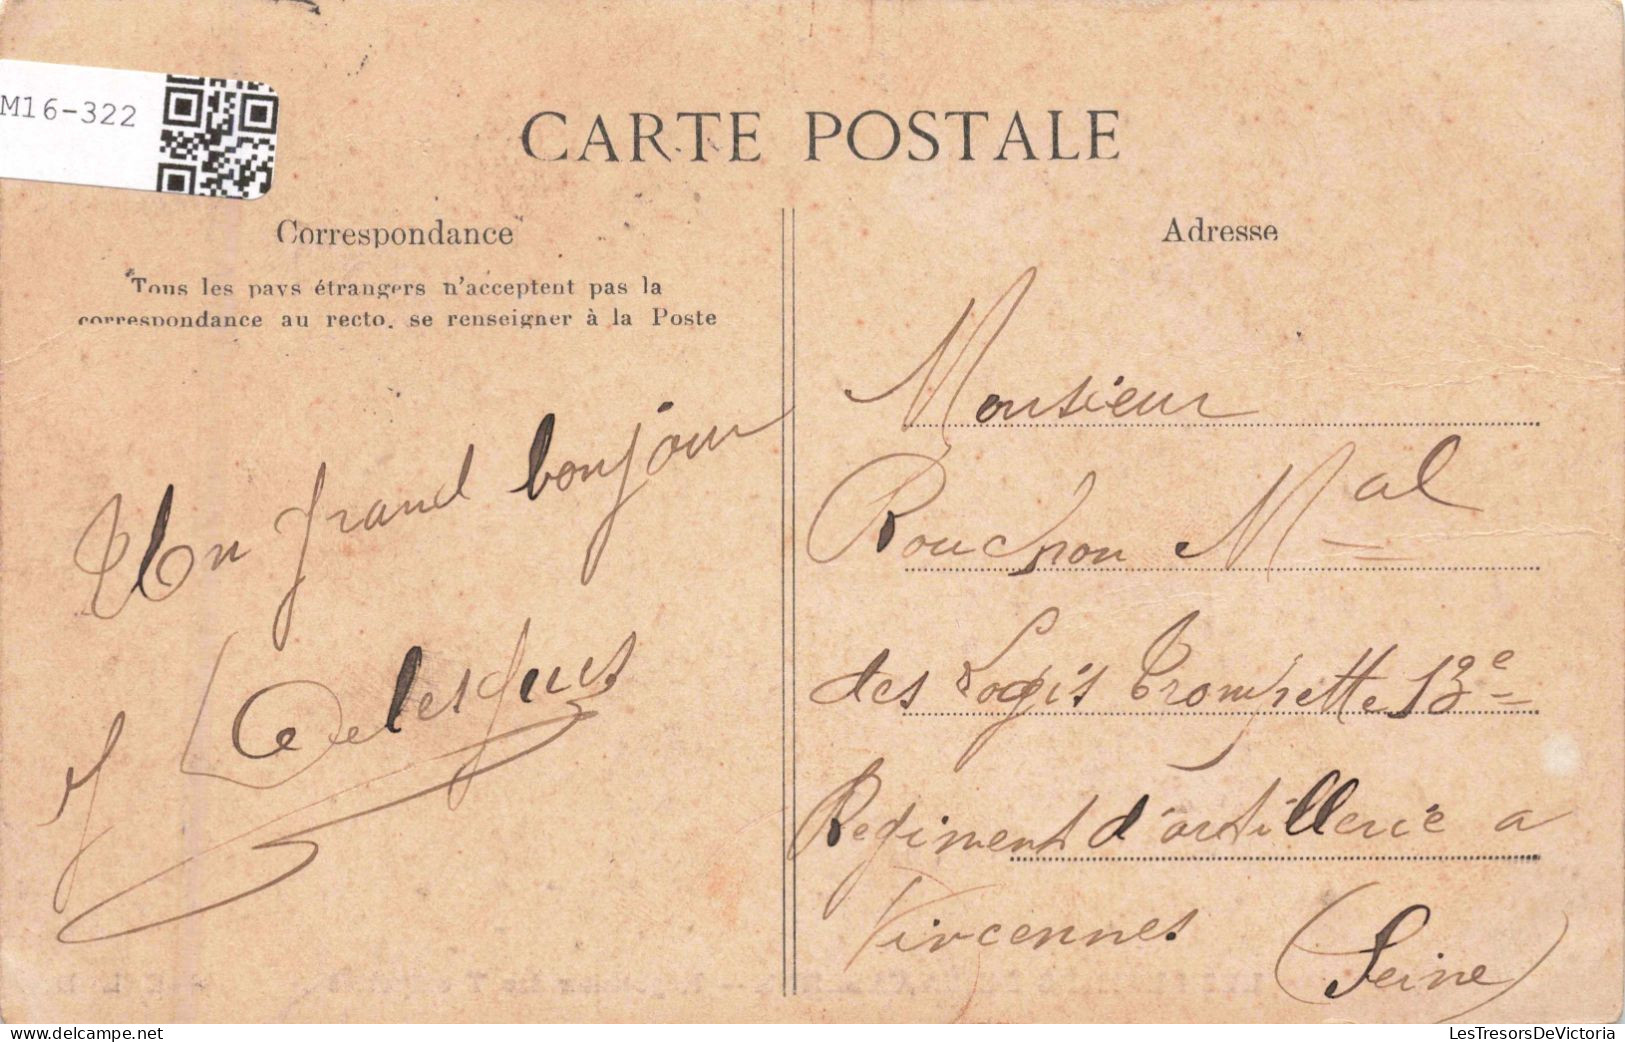 M16-322
CARTE POSTALE
Correspondance
Tous les pays étrangers n'acceptent pas la
correspondance au recto, se renseigner à la Poste
Un grand bonjour
Adresse
Monsieur
Rouchon Mal
des Logis Trompette 13e
Regiment d'artillerie a
Vincennes (Seine)
LesTresorsDeVictoria